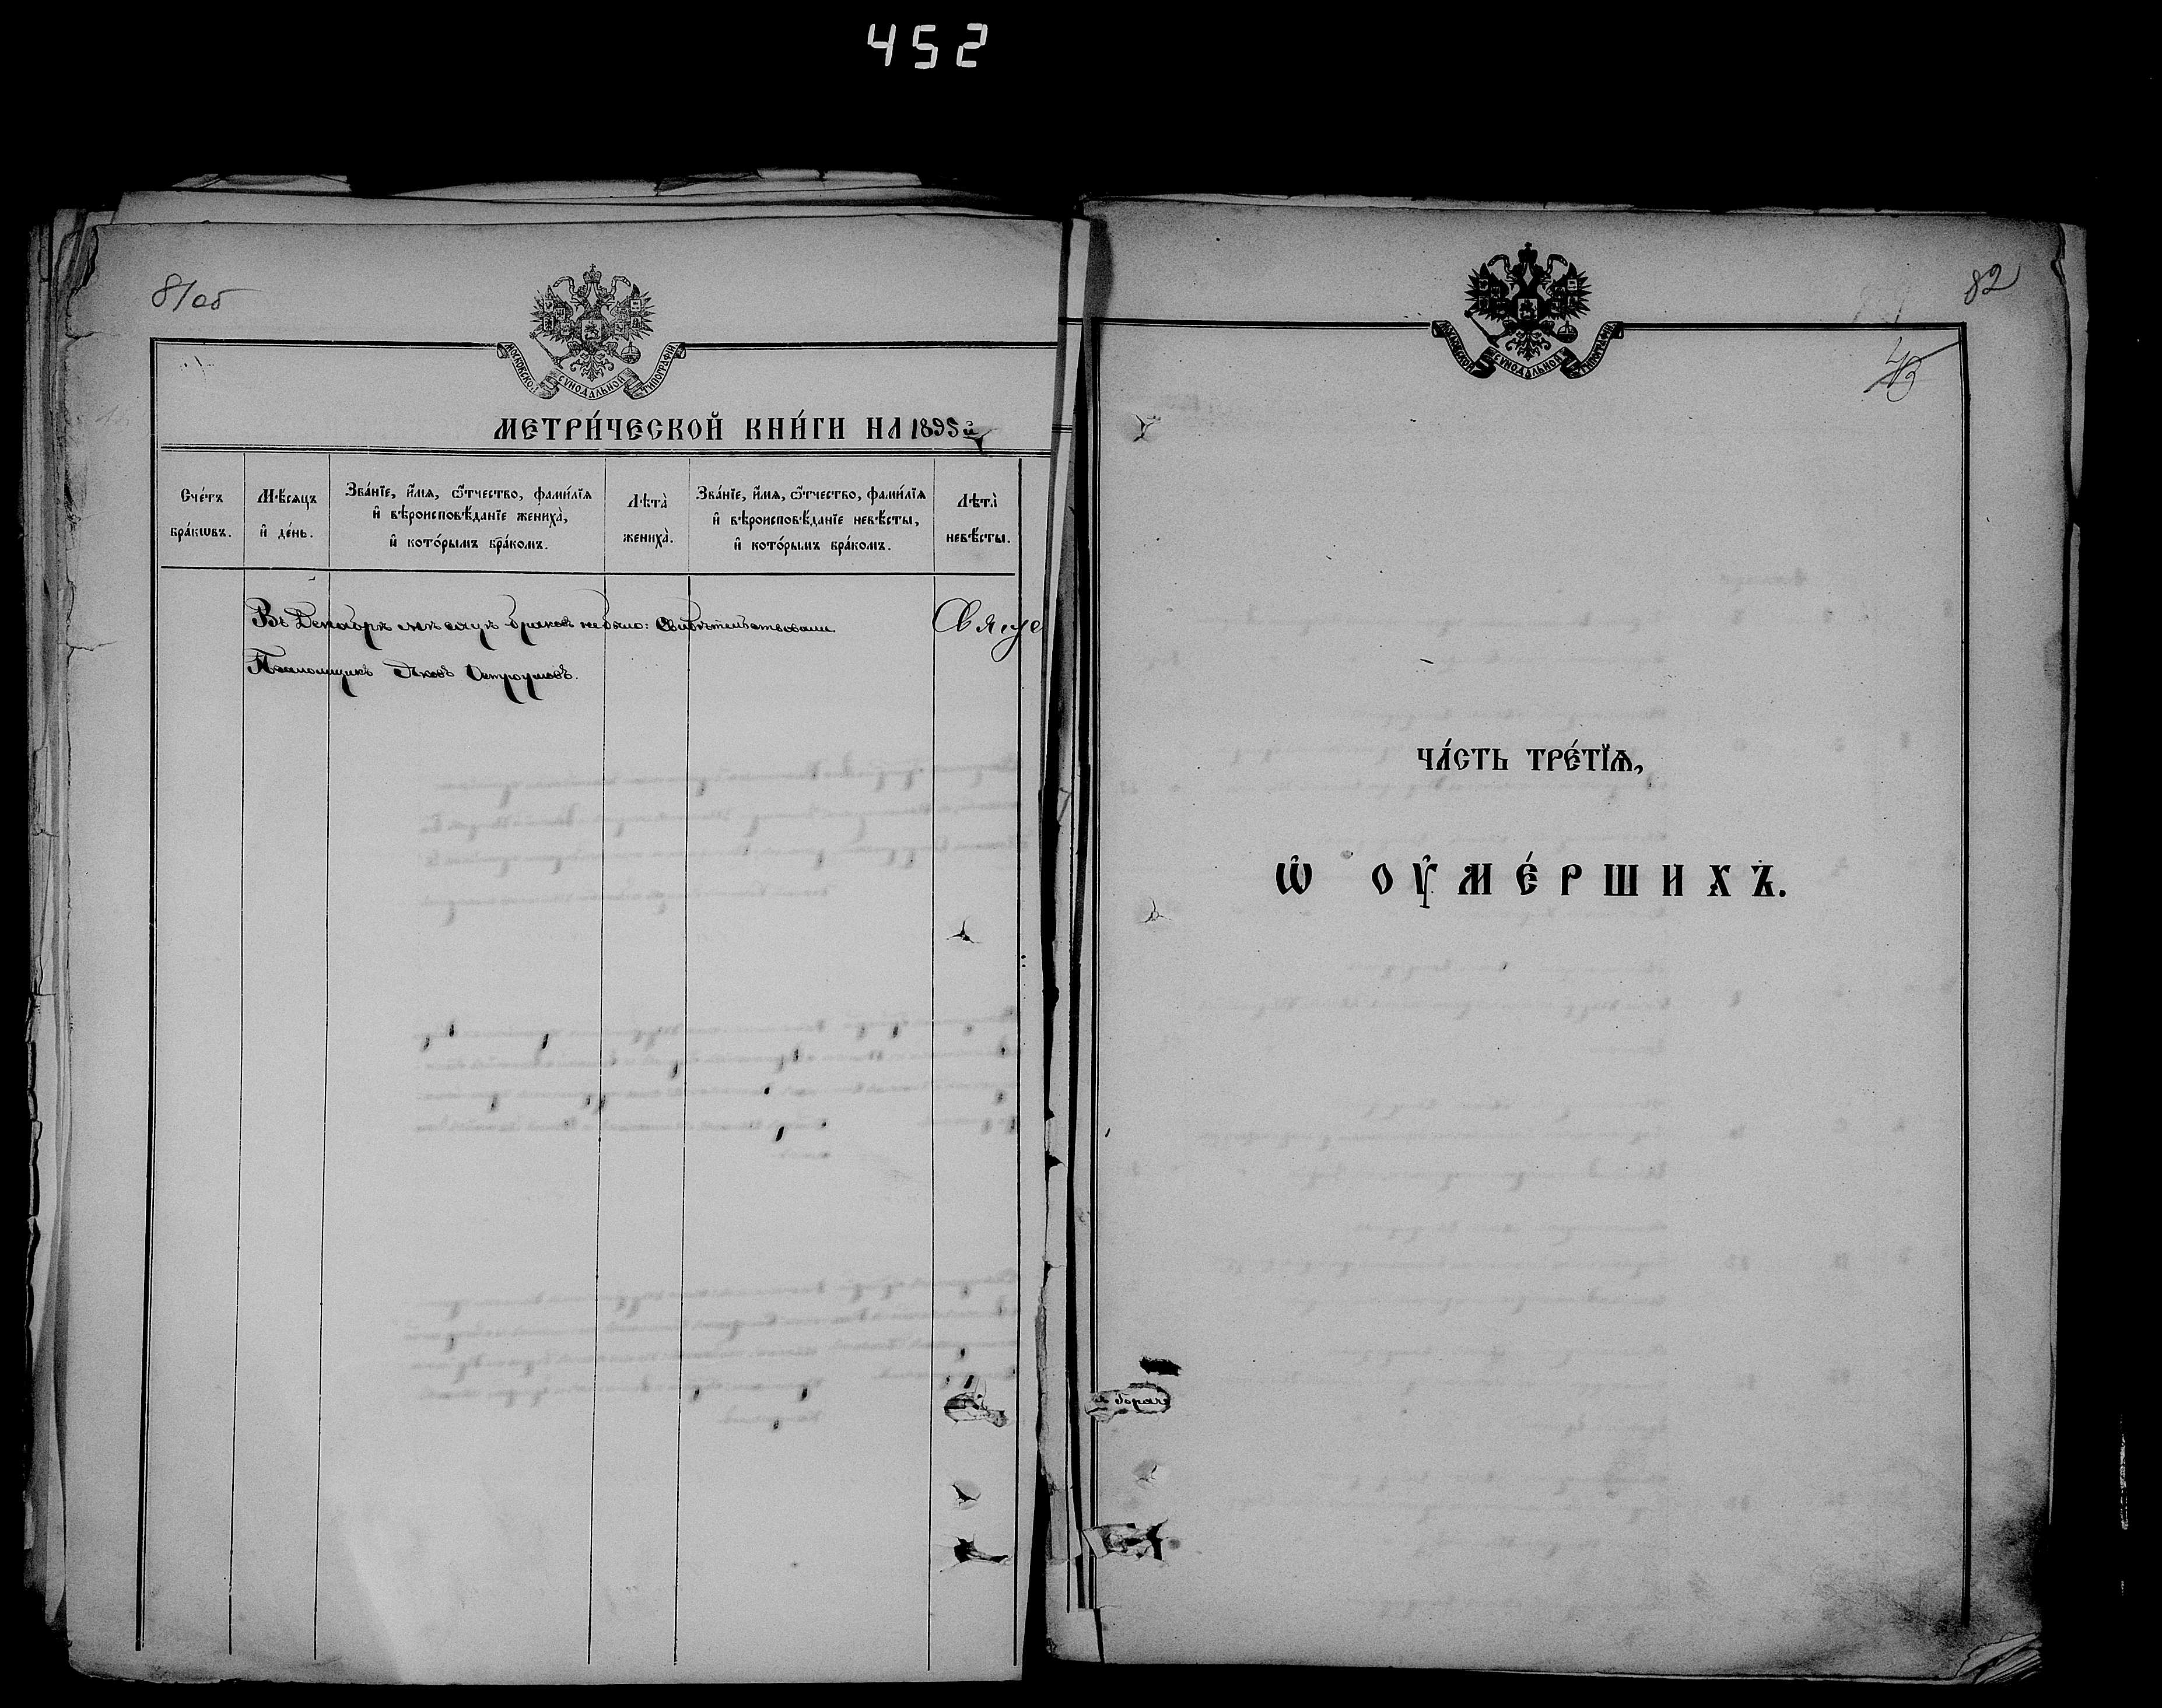 452
81 об
МОСКОВСКОЙ СѴНОДАЛЬНОЙ ТИПОГРАФІИ
МЕТРИ́ЧЕСКОЙ КНИ́ГИ НА 1893 й
Сче́тъ бра́кѡвъ.
Мѣ́сяцъ и҆ де́нь.
Зва́нїе, и҆́мѧ, ѻ҆́тчество, фами́лїѧ и҆ вѣроисповѣ́данїе жениха̀, и҆ кото́рымъ бра́комъ.
Лѣ́та̀ жениха̀.
Зва́нїе, и҆́мѧ, ѻ҆́тчество, фами́лїѧ и҆ вѣроисповѣ́данїе невѣ́сты, и҆ кото́рымъ бра́комъ.
Лѣ́та̀ невѣ́сты.
Въ Декабрѣ мѣсяцѣ браковъ не было: Свидѣтельствовали Свяще
Псаломщикъ Яковъ Остроумовъ.
82
43
МОСКОВСКОЙ СѴНОДАЛЬНОЙ ТИПОГРАФІИ
ЧА́СТЬ ТРЕ́ТЇѦ,
Ѡ҆ ОУ҆МЕ́РШИХЪ.